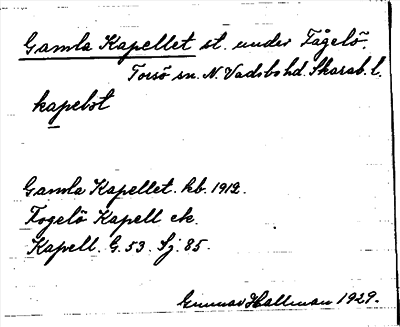 Gamla Kapellet st. under Fågelö.
Torsö sn. N. Vadsbo hd. Skarab. l.
kapelȯt
Gamla Kapellet. hb. 1912.
Fogelö Kapell ek.
Kapell. G. 53. Sj. 85.
Gunnar Hallman 1929.